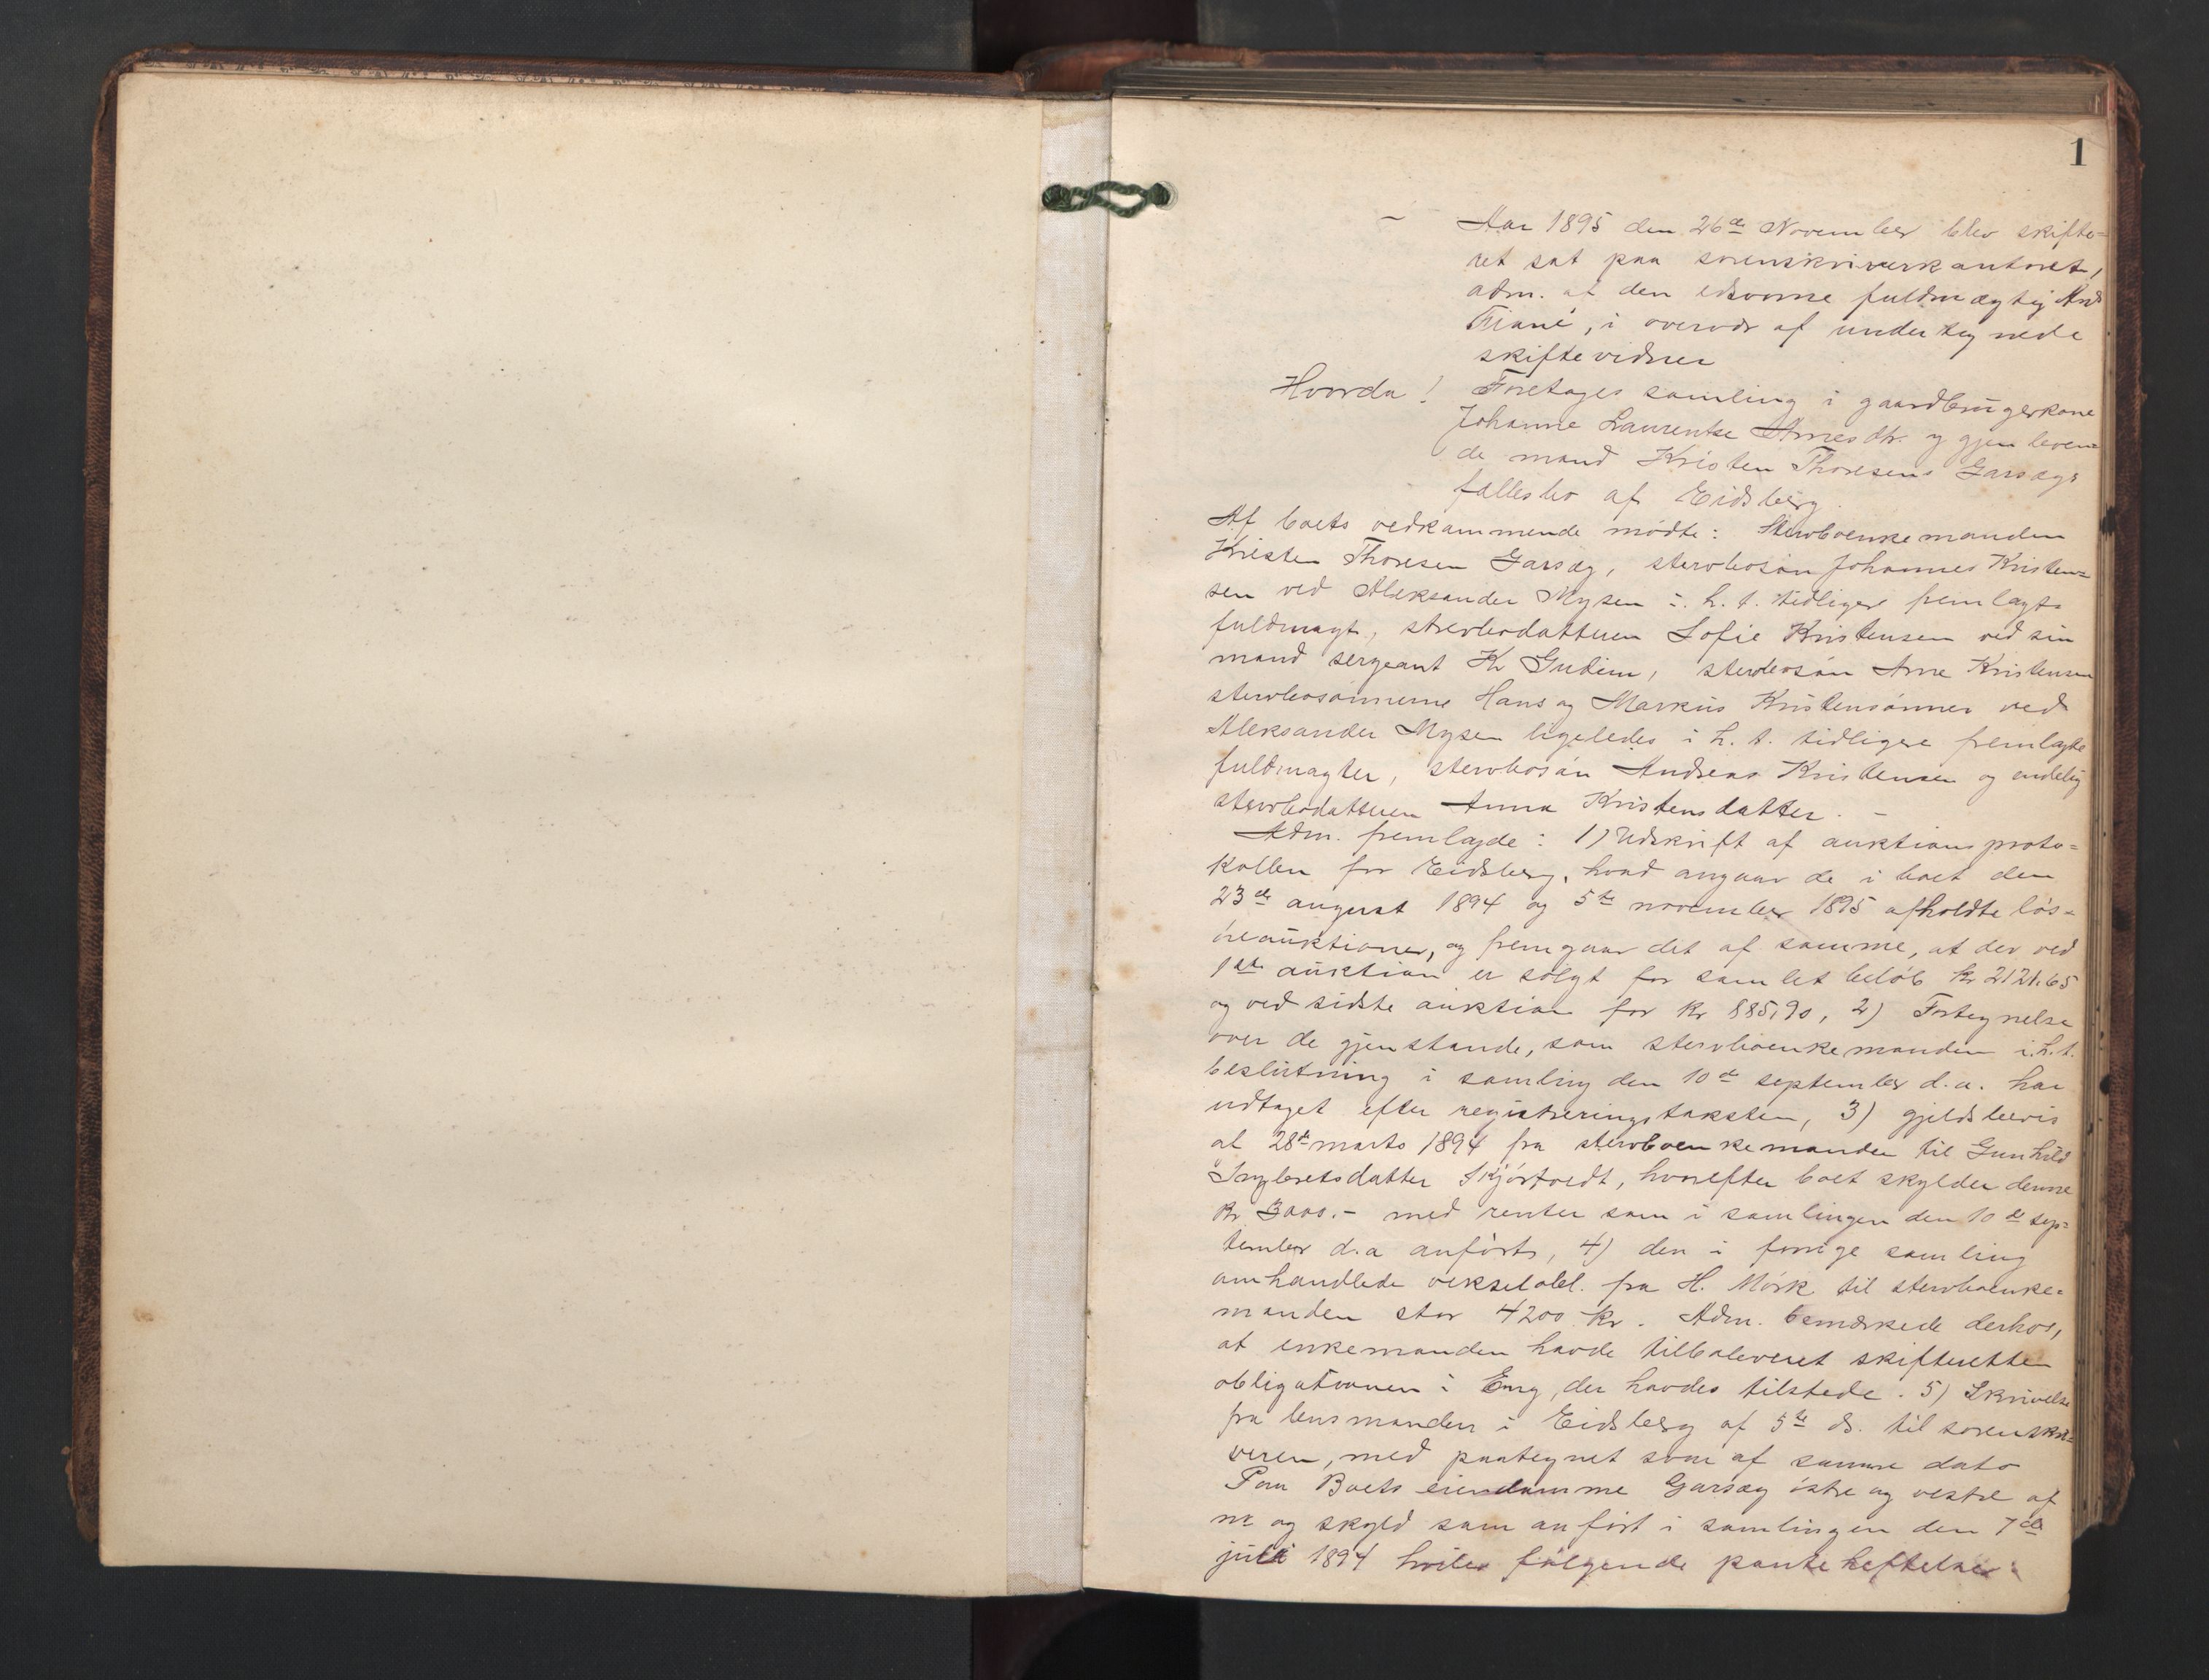 1
Aar 1895 den 26de November blev skifte=
ret sat paa sorenskriverkontoret,
adm. af den edsvorne fuldmægtig And
i overvær af undertegnede
skiftevidner
Hvorda! Foretages samling i gaardbrugerkone
Johanne Laurentse Arnesdtr. og gjenleven=
de mand Kristen Thoresens Garsægs
fællesbo af Eidsberg.
Af boets vedkommende mødte: Stervboenkemanden
Kristen Thoresen Garsæg, stervbosøn Johannes Kristen=
sen ved Aleksander Mysen i. h. t. tidligere fremlagt
fuldmagt, stervbodatteren Sofie Kristensen ved sin
mand sergeant K Gudim, stervbosøn Arne Kristensen
stervbosønnerne Hans og Markus Kristensønner ved
Aleksander Mysen ligeledes i h. t. tidligere fremlagte
fuldmagter, stervbosøn Andreas Kristensen og endelig
stervbodatteren Anna Kristensdatter. -
Adm. fremlagde: 1) Udskrift af auktionsproto=
kollen for Eidsberg, hvad angaar de i boet den
23de august 1894 og 5te november 1895 afholdte løs=
øreauktioner, og fremgaar det af samme, at der ved
1ste auktion er solgt for samlet beløb kr 2121.65
og ved sidste auktion for kr 885,90, 2) Fortegnelse
over de gjenstande, som stervboenkemanden i. h. t.
beslutning i samling den 10de september d. a. har
udtaget efter registreringstaksten, 3) gjeldsbevis
af 28de marts 1894 fra stervboenkemanden til Gunhild
Ingebretsdatter Skjørtvedt, hvorefter boet skylder denne
kr 3000.- med renter som i samlingen den 10de sep=
tember d. a anførts, 4) den i forrige samling
omhandlede vekselobl. fra H. Mørk til stervboenke=
manden stor 4200 kr. Adm. bemærkede derhos,
at enkemanden havde tilbaleveret skifteretten
obligationen i Eng, der havdes tilstede. 5) Skrivelse
fra lensmanden i Eidsberg af 5te ds. til sorenskri=
veren, med paategnet svar af samme dato
Paa Boets eiendomme Garsæg østre og vestre af
nr og skyld som anført i samlingen den 7de
juli 1894 hviler følgende panteheftelser: